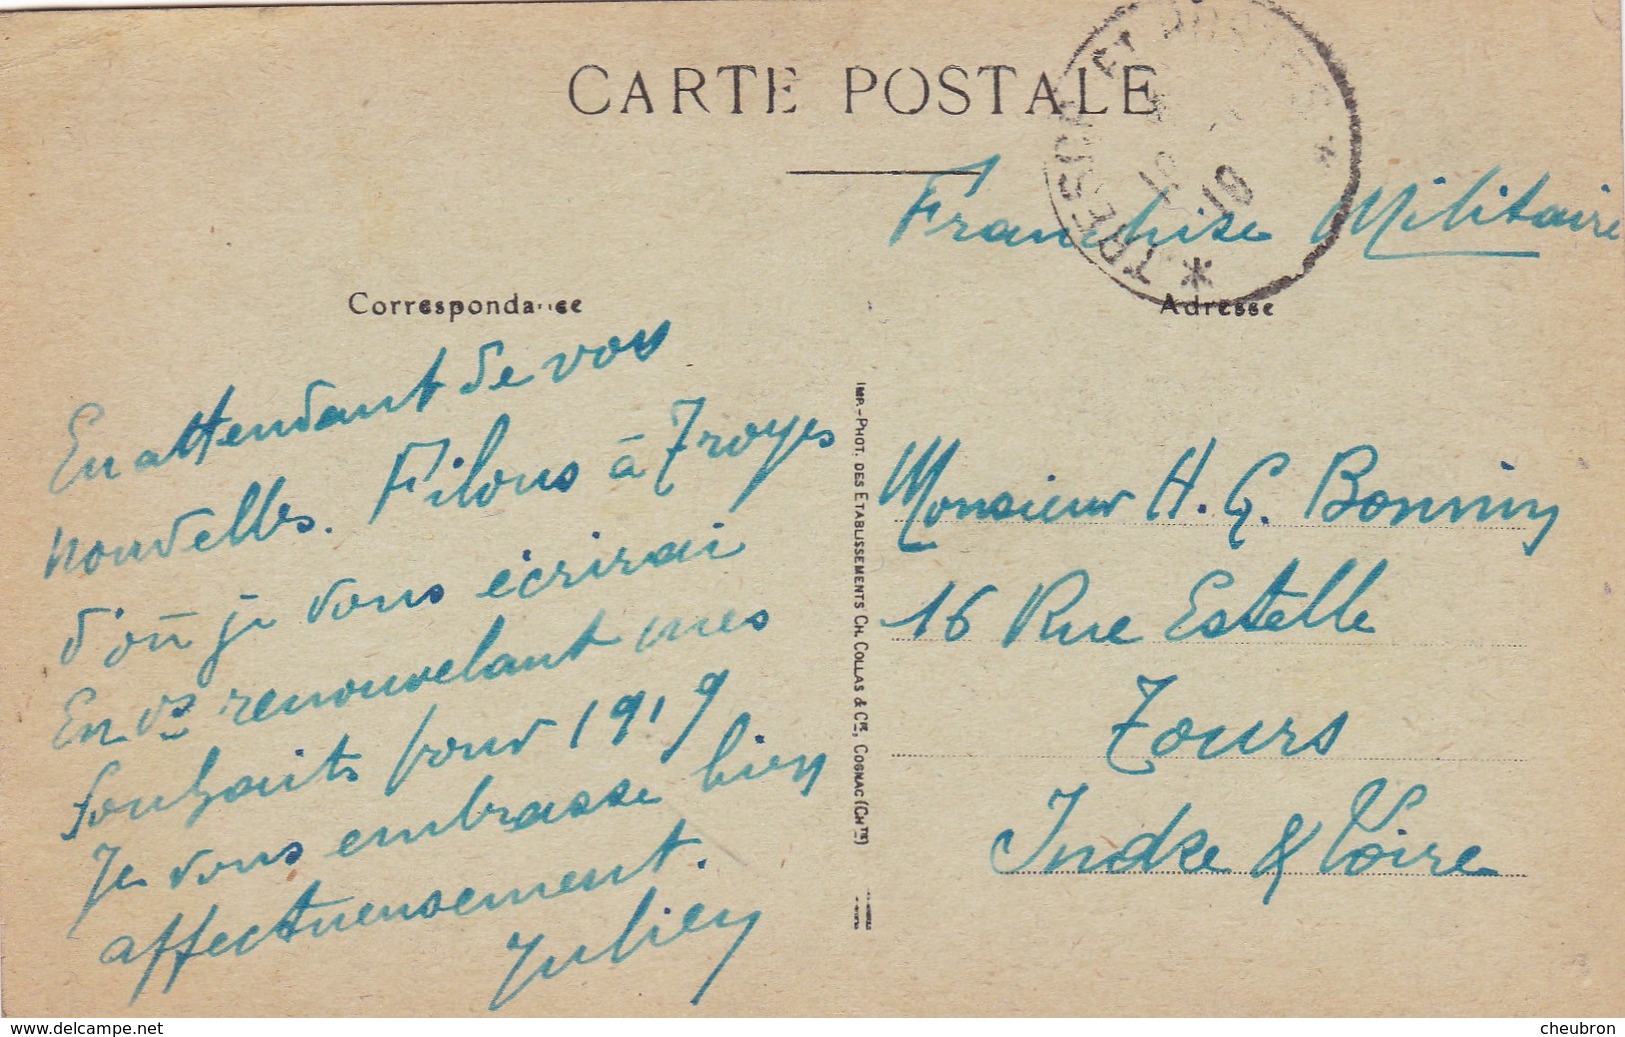 CARTE POSTALE
TRESOR ET POSTES
Franchise Militaire
Correspondance
Adresse
En attendant de vos
nouvelles. Filons à Troyes
d'où je vous écrirai
En vs renouvelant mes
souhaits pour 1919
Je vous embrasse bien
affectueusement.
Julien
IMP.-PHOT. DES ETABLISSEMENTS CH. COLLAS & Cie, COGNAC (CHTE)
Monsieur H. G. Bonnin
16 Rue Estelle
Tours
Indre & Loire
www.delcampe.net
cheubron